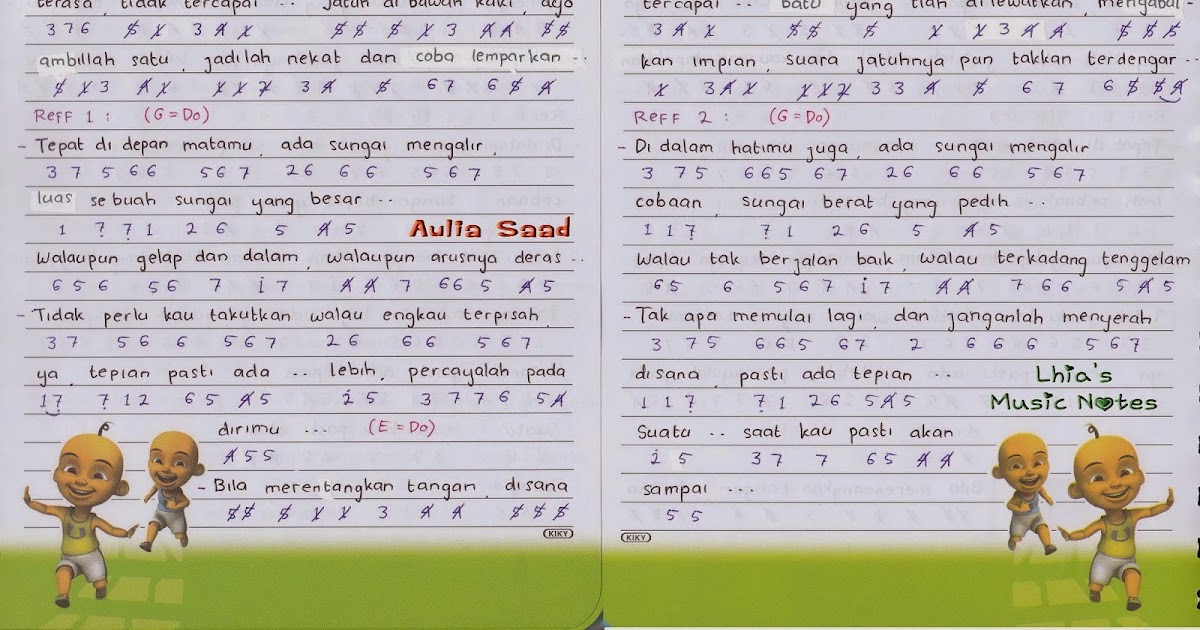 terasa, tidak tercapai .. jatuh di bawah kaki, ayo
3 7 6 5̸ 1̸ 3 4̸ 1̸ 5̸5̸ 5̸ 1̸ 3 4̸4̸ 5̸5̸
ambillah satu, jadilah nekat dan coba lemparkan ..
5̸ 1̸ 3 4̸1̸ 1̸1̸2̸ 3 4̸ 5̸ 6 7 6 5̸ 4̸
Reff 1 : (G = Do)
- Tepat di depan matamu, ada sungai mengalir,
3 7 5 6 6 5 6 7 2 6 6 6 5 6 7
luas sebuah sungai yang besar ..
1 7̣ 7̣ 1 2 6 5 4̸ 5
Aulia Saad
Walaupun gelap dan dalam, walaupun arusnya deras ..
6 5 6 5 6 7 i 7 4̸ 4̸ 7 6 6 5 4̸ 5
- Tidak perlu kau takutkan walau engkau terpisah,
3 7 5 6 6 5 6 7 2 6 6 6 5 6 7
ya, tepian pasti ada .. lebih, percayalah pada
1 7̣ 7̣ 1 2 6 5 4̸ 5 2̇ 5 3 7 7 6 5 4̸
dirimu ... (E = Do)
4̸ 5 5
- Bila merentangkan tangan, disana
5̸5̸ 5̸ 1̸ 1̸ 3 4̸ 4̸ 5̸ 5̸ 5̸
KIKY
tercapai .. batu yang tlah di lewatkan, mengabul -
3 4̸ 1̸ 5̸5̸ 5̸ 1̸ 1̸ 3 4̸ 4̸ 5̸ 5̸ 5̸
kan impian, suara jatuhnya pun takkan terdengar ..
1̸ 3 4̸ 1̸ 1̸1̸2̸ 3 3 4̸ 5̸ 6 7 6 5̸ 5̸4̸
Reff 2 : (G = Do)
- Di dalam hatimu juga, ada sungai mengalir
3 7 5 6 6 5 6 7 2 6 6 6 5 6 7
cobaan, sungai berat yang pedih ..
1 1 7̣ 7̣ 1 2 6 5 4̸ 5
Walau tak berjalan baik, walau terkadang tenggelam
6 5 6 5 6 7 i 7 4̸4̸ 7 6 6 5 4̸ 5
- Tak apa memulai lagi, dan janganlah menyerah
3 7 5 6 6 5 6 7 2 6 6 6 5 6 7
disana pasti ada tepian ...
Lhia's
1 1 7̣ 7̣ 1 2 6 5 4̸ 5
Music Notes
Suatu .. saat kau pasti akan
2̇ 5 3 7 7 6 5 4̸ 4̸
sampai ....
5 5
KIKY